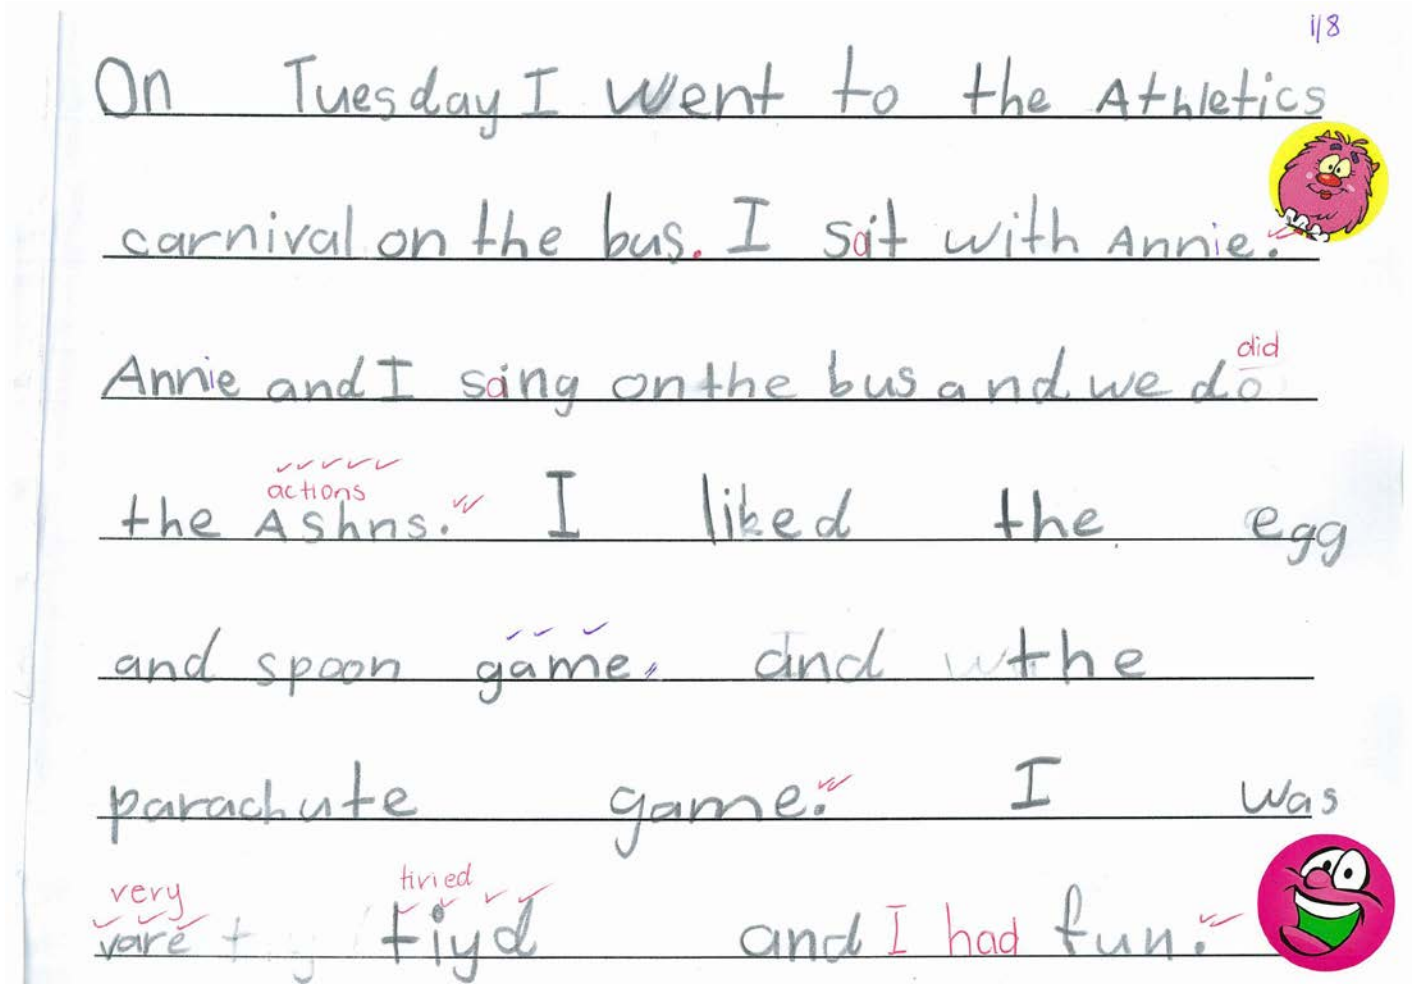 1/8
On Tuesday I went to the Athletics
carnival on the bus. I sat with Annie.
did
Annie and I sang on the bus and we do
actions
the Ashns. I liked the egg
and spoon game. and the
parachute game. I was
very tired
vare tiyd and I had fun.